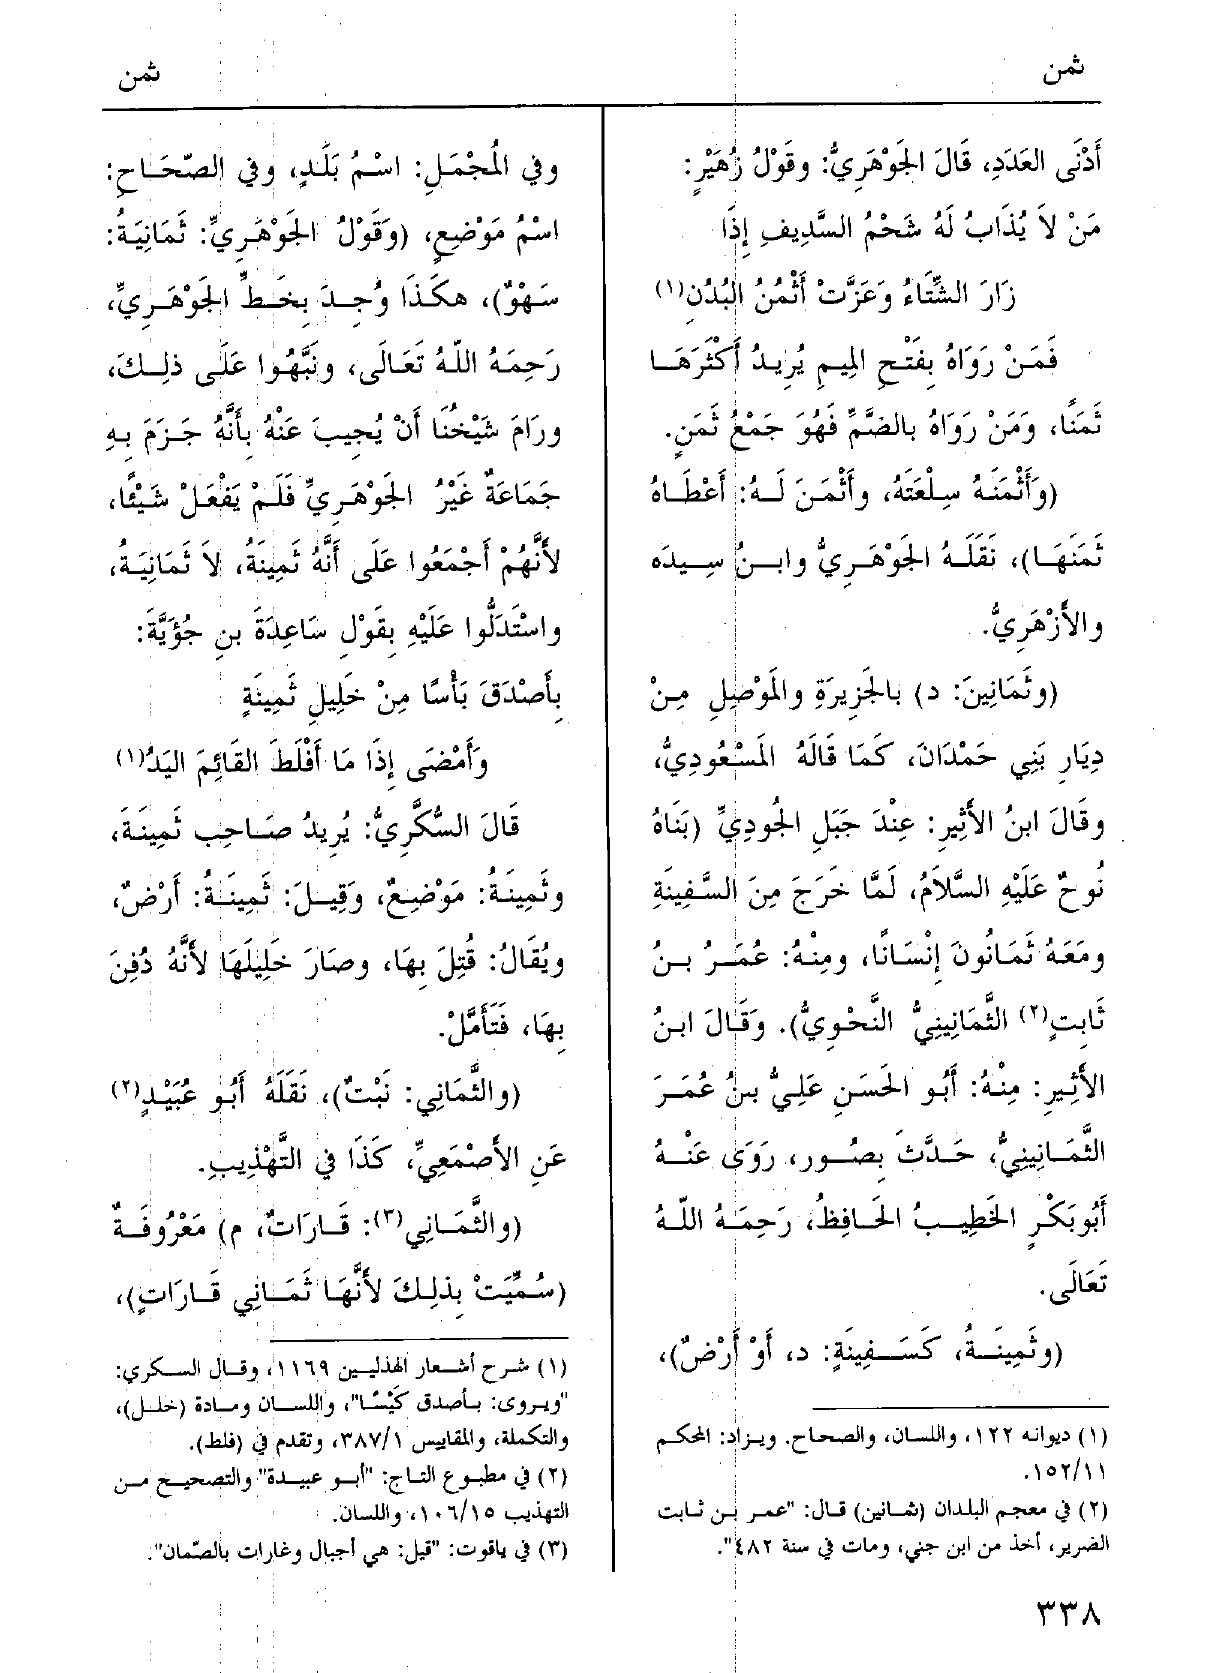 ثمن
ثمن
أَدْنَى العَدَدِ، قَالَ الجَوْهَرِيُّ: وقَوْلُ زُهَيْرٍ:
مَنْ لاَ يُذَابُ لَهُ شَحْمُ السَّدِيفِ إِذَا
زَارَ الشِّتَاءُ وَعَزَّتْ أَثْمُنُ البُدُنِ(١)
فَمَنْ رَوَاهُ بِفَتْحِ المِيمِ يُرِيدُ أَكْثَرَهَا
ثَمَنًا، وَمَنْ رَوَاهُ بالضَّمِّ فَهُوَ جَمْعُ ثَمَنٍ.
(وَأَثْمَنَهُ سِلْعَتَهُ، وأَثْمَنَ لَهُ: أَعْطَاهُ
ثَمَنَهَا)، نَقَلَهُ الجَوْهَرِيُّ وابنُ سِيدَه
والأَزْهَرِيُّ.
(وثَمَانِينَ: د) بالجَزِيرَةِ والمَوْصِلِ مِنْ
دِيَارِ بَنِي حَمْدَانَ، كَمَا قَالَهُ المَسْعُودِيُّ،
وقَالَ ابنُ الأَثِيرِ: عِنْدَ جَبَلِ الجُودِيِّ (بَنَاهُ
نُوحٌ عَلَيْهِ السَّلاَمُ، لَمَّا خَرَجَ مِنَ السَّفِينَةِ
ومَعَهُ ثَمَانُونَ إِنْسَانًا، ومِنْهُ: عُمَرُ بنُ
ثَابِتٍ(٢) الثَّمَانِينِيُّ النَّحْوِيُّ). وَقَالَ ابنُ
الأَثِيرِ: مِنْهُ: أَبُو الحَسَنِ عَلِيُّ بنُ عُمَرَ
الثَّمَانِينِيُّ، حَدَّثَ بِصُور، رَوَى عَنْهُ
أَبُوبَكْرٍ الخَطِيبُ الحَافِظُ، رَحِمَهُ اللّهُ
تَعَالَى.
(وثَمِينَةُ، كَسَفِينَةٍ: د، أَوْ أَرْضٌ)،
(١) ديوانه ١٢٢، واللسان، والصحاح. ويزاد: المحكم
١٥٢/١١.
(٢) في معجم البلدان (ثمانين) قال: "عمر بن ثابت
الضرير، أخذ من ابن جني، ومات في سنة ٤٨٢".
وفي المُجْمَلِ: اسْمُ بَلَدٍ، وفي الصّحَاحِ:
اسْمُ مَوْضِعٍ، (وَقَوْلُ الجَوْهَرِيِّ: ثَمَانِيَةُ:
سَهْوٌ)، هكَذَا وُجِدَ بِخَطِّ الجَوْهَرِيِّ،
رَحِمَهُ اللّهُ تَعَالَى، ونَبَّهُوا عَلَى ذلِكَ،
ورَامَ شَيْخُنَا أَنْ يُجِيبَ عَنْهُ بِأَنَّهُ جَزَمَ بِهِ
جَمَاعَةٌ غَيْرُ الجَوْهَرِيِّ فَلَمْ يَفْعَلْ شَيْئًا،
لأَنَّهُمْ أَجْمَعُوا عَلَى أَنَّهُ ثَمِينَةُ، لاَ ثَمَانِيَةُ،
واسْتَدَلُّوا عَلَيْهِ بِقَوْلِ سَاعِدَةَ بنِ جُؤَيَّةَ:
بِأَصْدَقَ بَأْسًا مِنْ خَلِيلِ ثَمِينَةٍ
وَأَمْضَى إِذَا مَا أَفْلَطَ القَائِمَ اليَدُ(١)
قَالَ السُّكَّرِيُّ: يُرِيدُ صَاحِبَ ثَمِينَةَ،
وثَمِينَةُ: مَوْضِعٌ، وَقِيلَ: ثَمِينَةُ: أَرْضٌ،
ويُقَالُ: قُتِلَ بِهَا، وصَارَ خَلِيلَهَا لأَنَّهُ دُفِنَ
بِهَا، فَتَأَمَّلْ.
(والثَّمَانِي: نَبْتٌ)، نَقَلَهُ أَبُو عُبَيْدٍ(٢)
عَنِ الأَصْمَعِيِّ، كَذَا في التَّهْذِيبِ.
(والثَّمَانِي(٣): قَارَاتٌ، م) مَعْرُوفَةٌ
(سُمِّيَتْ بِذلِكَ لأَنَّهَا ثَمَانِي قَارَاتٍ)،
(١) شرح أشعار الهذليين ١١٦٩، وقال السكري:
"ويروى: بأصدق كَيْسًا"، واللسان ومادة (خلل)،
والتكملة، والمقاييس ٣٨٧/١، وتقدم في (فلط).
(٢) في مطبوع التاج: "أبو عبيدة" والتصحيح من
التهذيب ١٠٦/١٥، واللسان.
(٣) في ياقوت: "قيل: هي أجبال وغارات بالصّمان".
٣٣٨